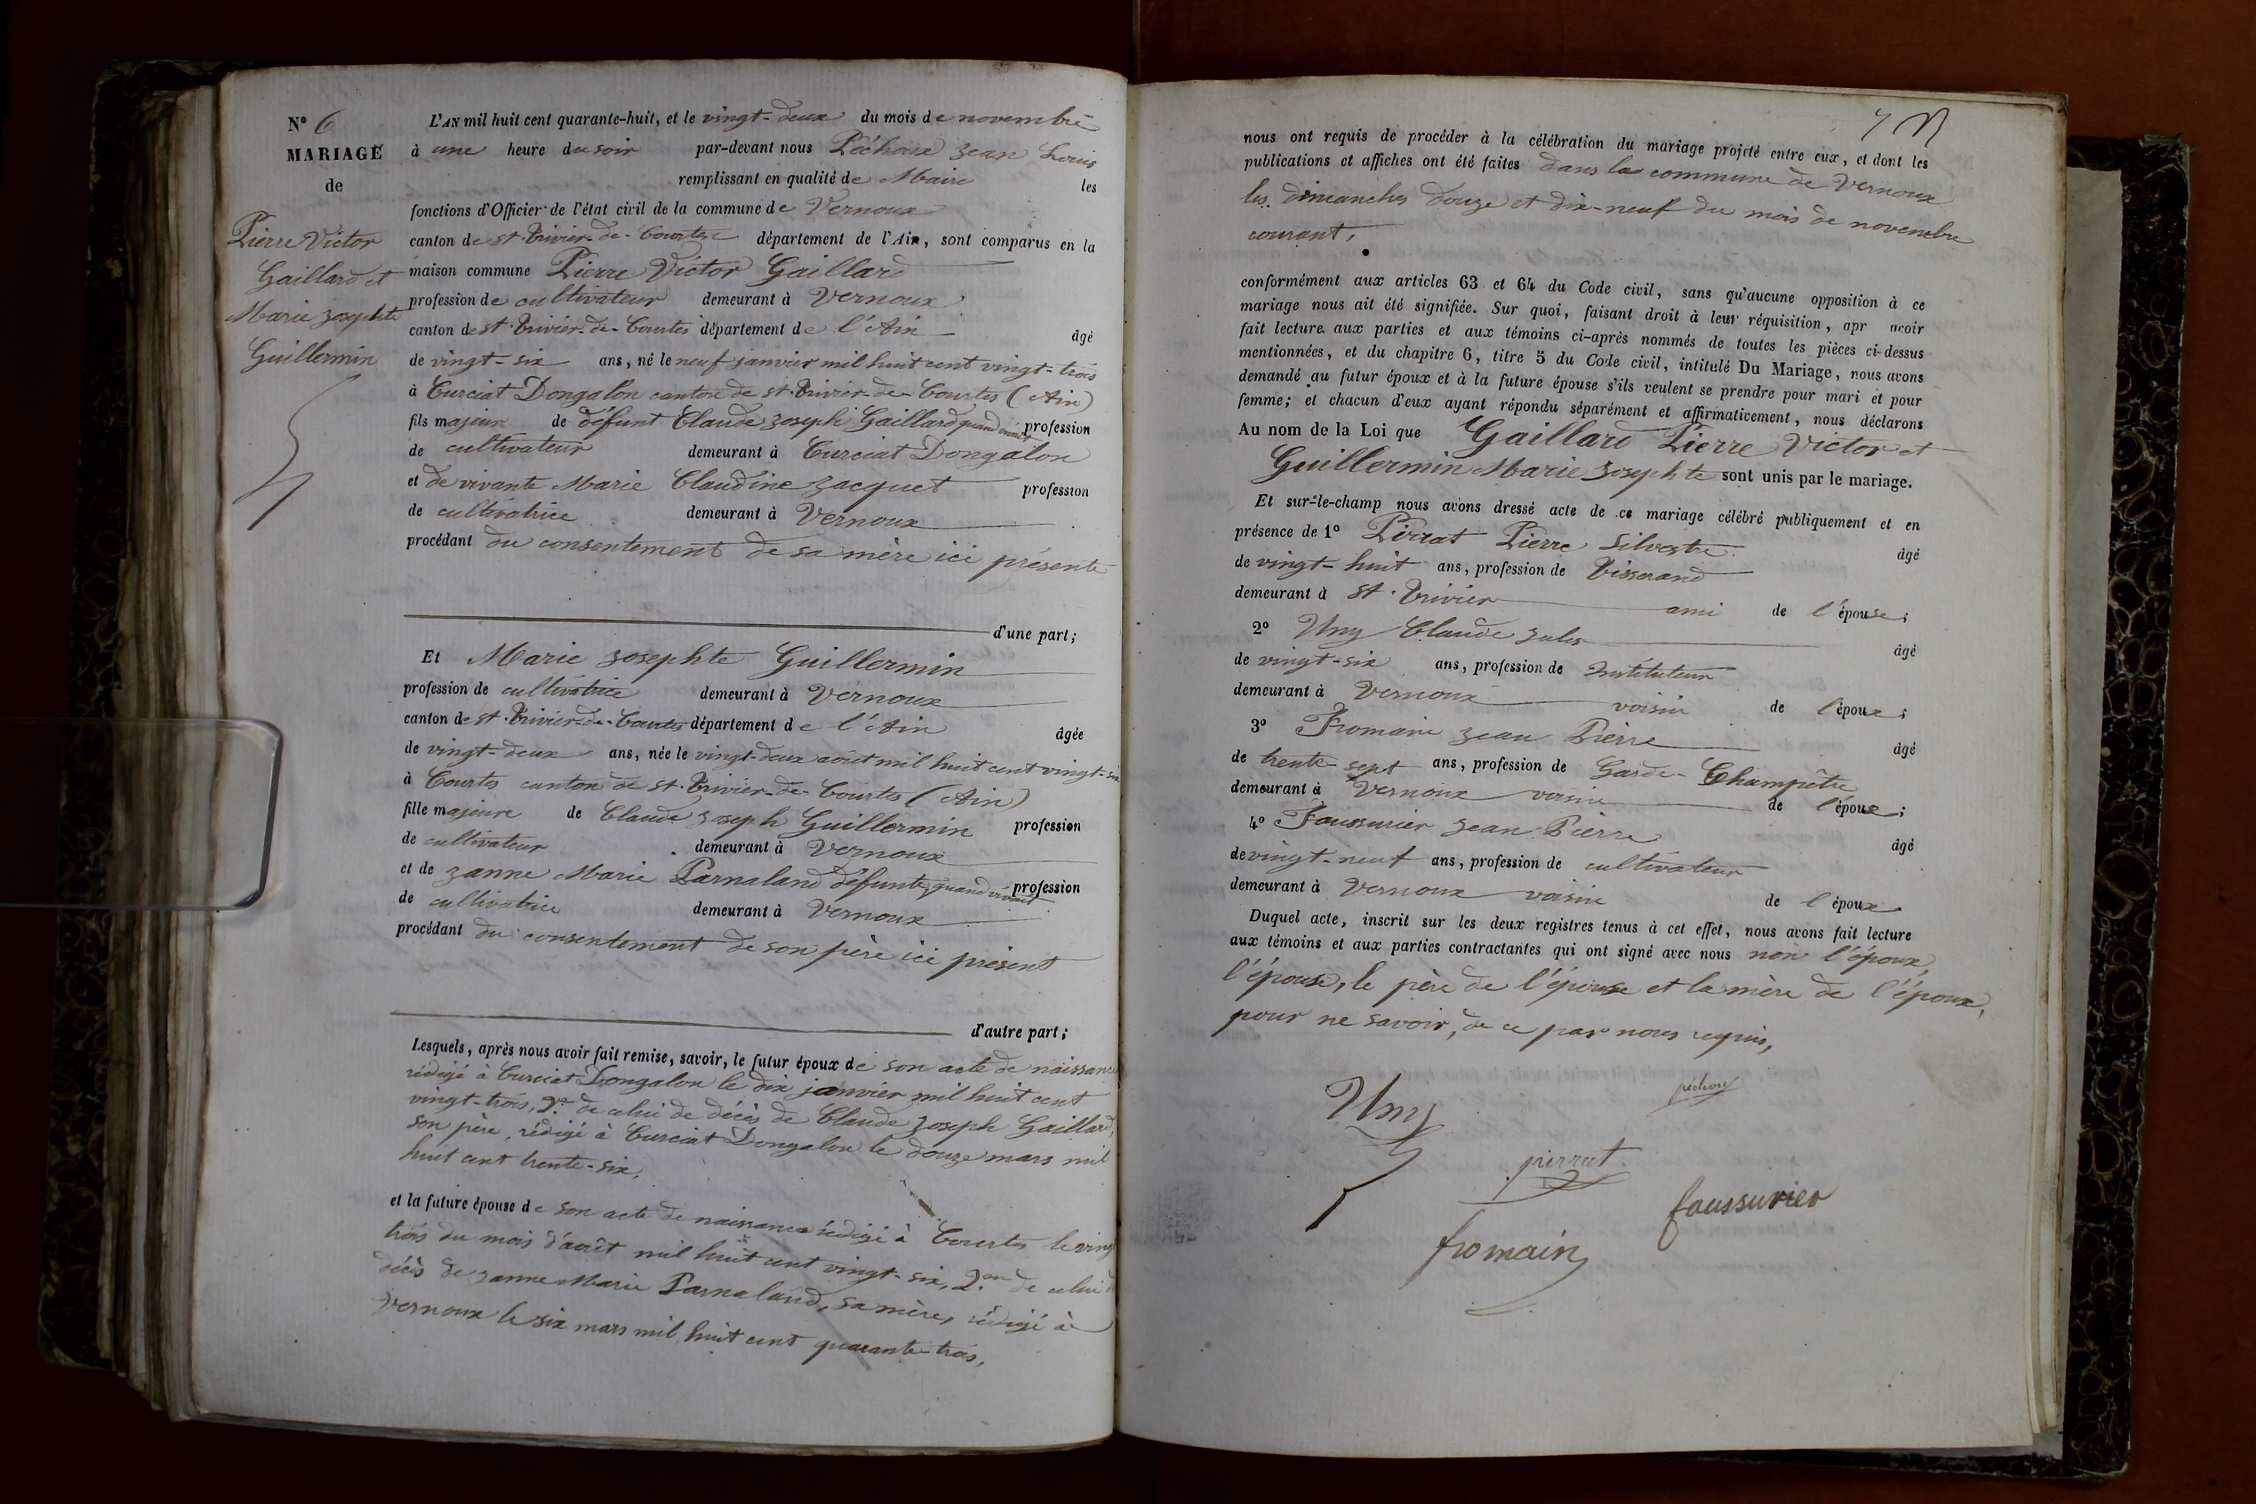 N° 6
MARIAGE
de
Pierre Victor
Gaillard et
Marie Josephte
Guillermin
L'AN mil huit cent quarante-huit, et le vingt-deux du mois de novembre
à une heure du soir par-devant nous Péchoux Jean Louis
remplissant en qualité de Maire les
fonctions d'Officier de l'état civil de la commune de Vernoux
canton de St. Trivier-de-Courtes département de l'Ain, sont comparus en la
maison commune Pierre Victor Gaillard
profession de cultivateur demeurant à Vernoux
canton de St. Trivier-de-Courtes département de l'Ain âgé
de vingt-six ans, né le neuf janvier mil huit cent vingt-trois
à Curciat Dongalon canton de St. Trivier-de-Courtes (Ain)
fils majeur de défunt Claude Joseph Gaillard quand vivait profession
de cultivateur demeurant à Curciat Dongalon
et de vivante Marie Claudine Jacquet profession
de cultivatrice demeurant à Vernoux
procédant du consentement de sa mère ici présente
d'une part;
Et Marie Josephte Guillermin
profession de cultivatrice demeurant à Vernoux
canton de St. Trivier-de-Courtes département de l'Ain âgée
de vingt-deux ans, née le vingt-deux août mil huit cent vingt-six
à Courtes canton de St. Trivier-de-Courtes (Ain)
fille majeure de Claude Joseph Guillermin profession
de cultivateur demeurant à Vernoux
et de Janne Marie Parnaland défunte, quand vivait profession
de cultivatrice demeurant à Vernoux
procédant du consentement de son père ici présent
d'autre part;
Lesquels, après nous avoir fait remise, savoir, le futur époux de son acte de naissance
rédigé à Curciat Dongalon le dix janvier mil huit cent
vingt-trois, 2.° de celui de décès de Claude Joseph Gaillard,
son père, rédigé à Curciat Dongalon le douze mars mil
huit cent trente-six,
et la future épouse de son acte de naissance rédigé à Courtes le vingt
trois du mois d'août mil huit cent vingt-six, 2.° de celui de
décès de Janne Marie Parnaland, sa mère, rédigé à
Vernoux le six mars mil huit cent quarante-trois,
nous ont requis de procéder à la célébration du mariage projeté entre eux, et dont les
publications et affiches ont été faites dans la commune de Vernoux
les dimanches douze et dix-neuf du mois de novembre
courant,
conformément aux articles 63 et 64 du Code civil, sans qu'aucune opposition à ce
mariage nous ait été signifiée. Sur quoi, faisant droit à leur réquisition, apr avoir
fait lecture aux parties et aux témoins ci-après nommés de toutes les pièces ci-dessus
mentionnées, et du chapitre 6, titre 5 du Code civil, intitulé Du Mariage, nous avons
demandé au futur époux et à la future épouse s'ils veulent se prendre pour mari et pour
femme; et chacun d'eux ayant répondu séparément et affirmativement, nous déclarons
Au nom de la Loi que Gaillard Pierre Victor et
Guillermin Marie Josephte sont unis par le mariage.
Et sur-le-champ nous avons dressé acte de ce mariage célébré publiquement et en
présence de 1° Perrat Pierre Silvestre âgé
de vingt-huit ans, profession de Tisserand
demeurant à St. Trivier ami de l'épouse;
2° Uny Claude Jules âgé
de vingt-six ans, profession de Instituteur
demeurant à Vernoux voisin de l'époux;
3° Fromain Jean Pierre âgé
de trente-sept ans, profession de Garde-Champêtre
demeurant à Vernoux voisin de l'époux;
4° Foussurier Jean Pierre âgé
de vingt-neuf ans, profession de cultivateur
demeurant à Vernoux voisin de l'époux
Duquel acte, inscrit sur les deux registres tenus à cet effet, nous avons fait lecture
aux témoins et aux parties contractantes qui ont signé avec nous non l'époux,
l'épouse, le père de l'épouse et la mère de l'époux,
pour ne savoir, de ce par nous requis,
Uny
péchoux
perrat
foussurier
fromain